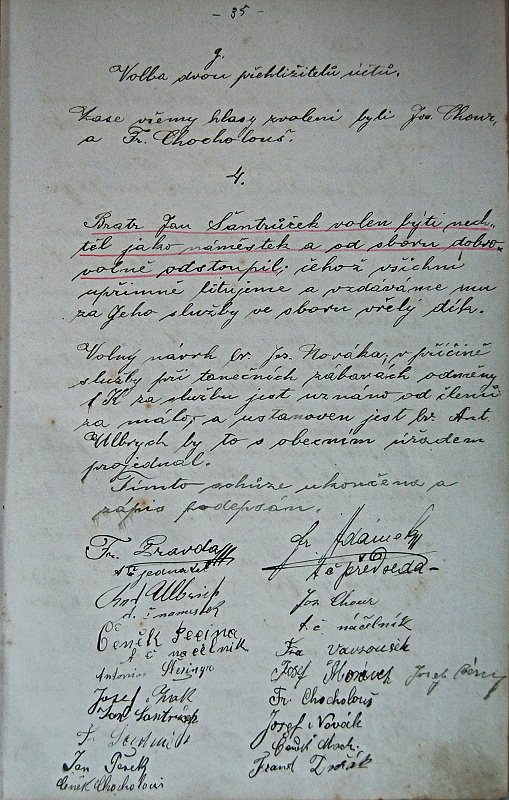 - 35 -
g.
Volba dvou přehližitelů účtů.
Zase všemy hlasy zvoleni byli Jos. Chour,
a Fr. Chocholouš.
4.
Bratr Jan Šantrůček volen býti nech-
těl jako náměstek a od sboru dobro-
volně odstoupil; čehož všichni
upřimně litujeme a vzdáváme mu
za Jeho služby ve sboru vřelý dík.
Volný návrh br. Jos. Nováka, v příčině
služby při tanečních zábavách odměny
1 K za službu jest uznáno od členů
za málo, a ustanoven jest br. Ant.
Ulbrych by to s obecním úřadem
projednal.
Tímto schůze ukončena a
zápis podepsán.
Fr. Pravda
t č jednatel
Fr Adámek
t č předseda
Ant Ulbrich
t. č náměstek
Jos. Chour
t. č. náčelník
Čeněk Pecina
t č načelník
Fra Vavroušek
Antonin
Josef Morávek Josef
Josef
Fr. Chocholouš
Jan Šantrůček
Josef Novák
F.
Čeněk
Jan
Frant Dvořák
Čeněk Chocholouš